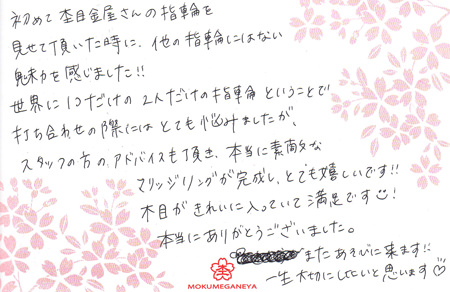 初めて杢目金屋さんの指輪を
見せて頂いた時に、他の指輪にはない
魅力を感じました!!
世界に1つだけの2人だけの指輪ということで
打ち合わせの際にはとても悩みましたが、
スタッフの方のアドバイスも頂き、本当に素敵な
マリッジリングが完成し、とても嬉しいです!!
木目がきれいに入っていて満足です!
本当にありがとうございました。
またあそびに来ます!!
一生大切にしたいと思います♡
MOKUMEGANEYA